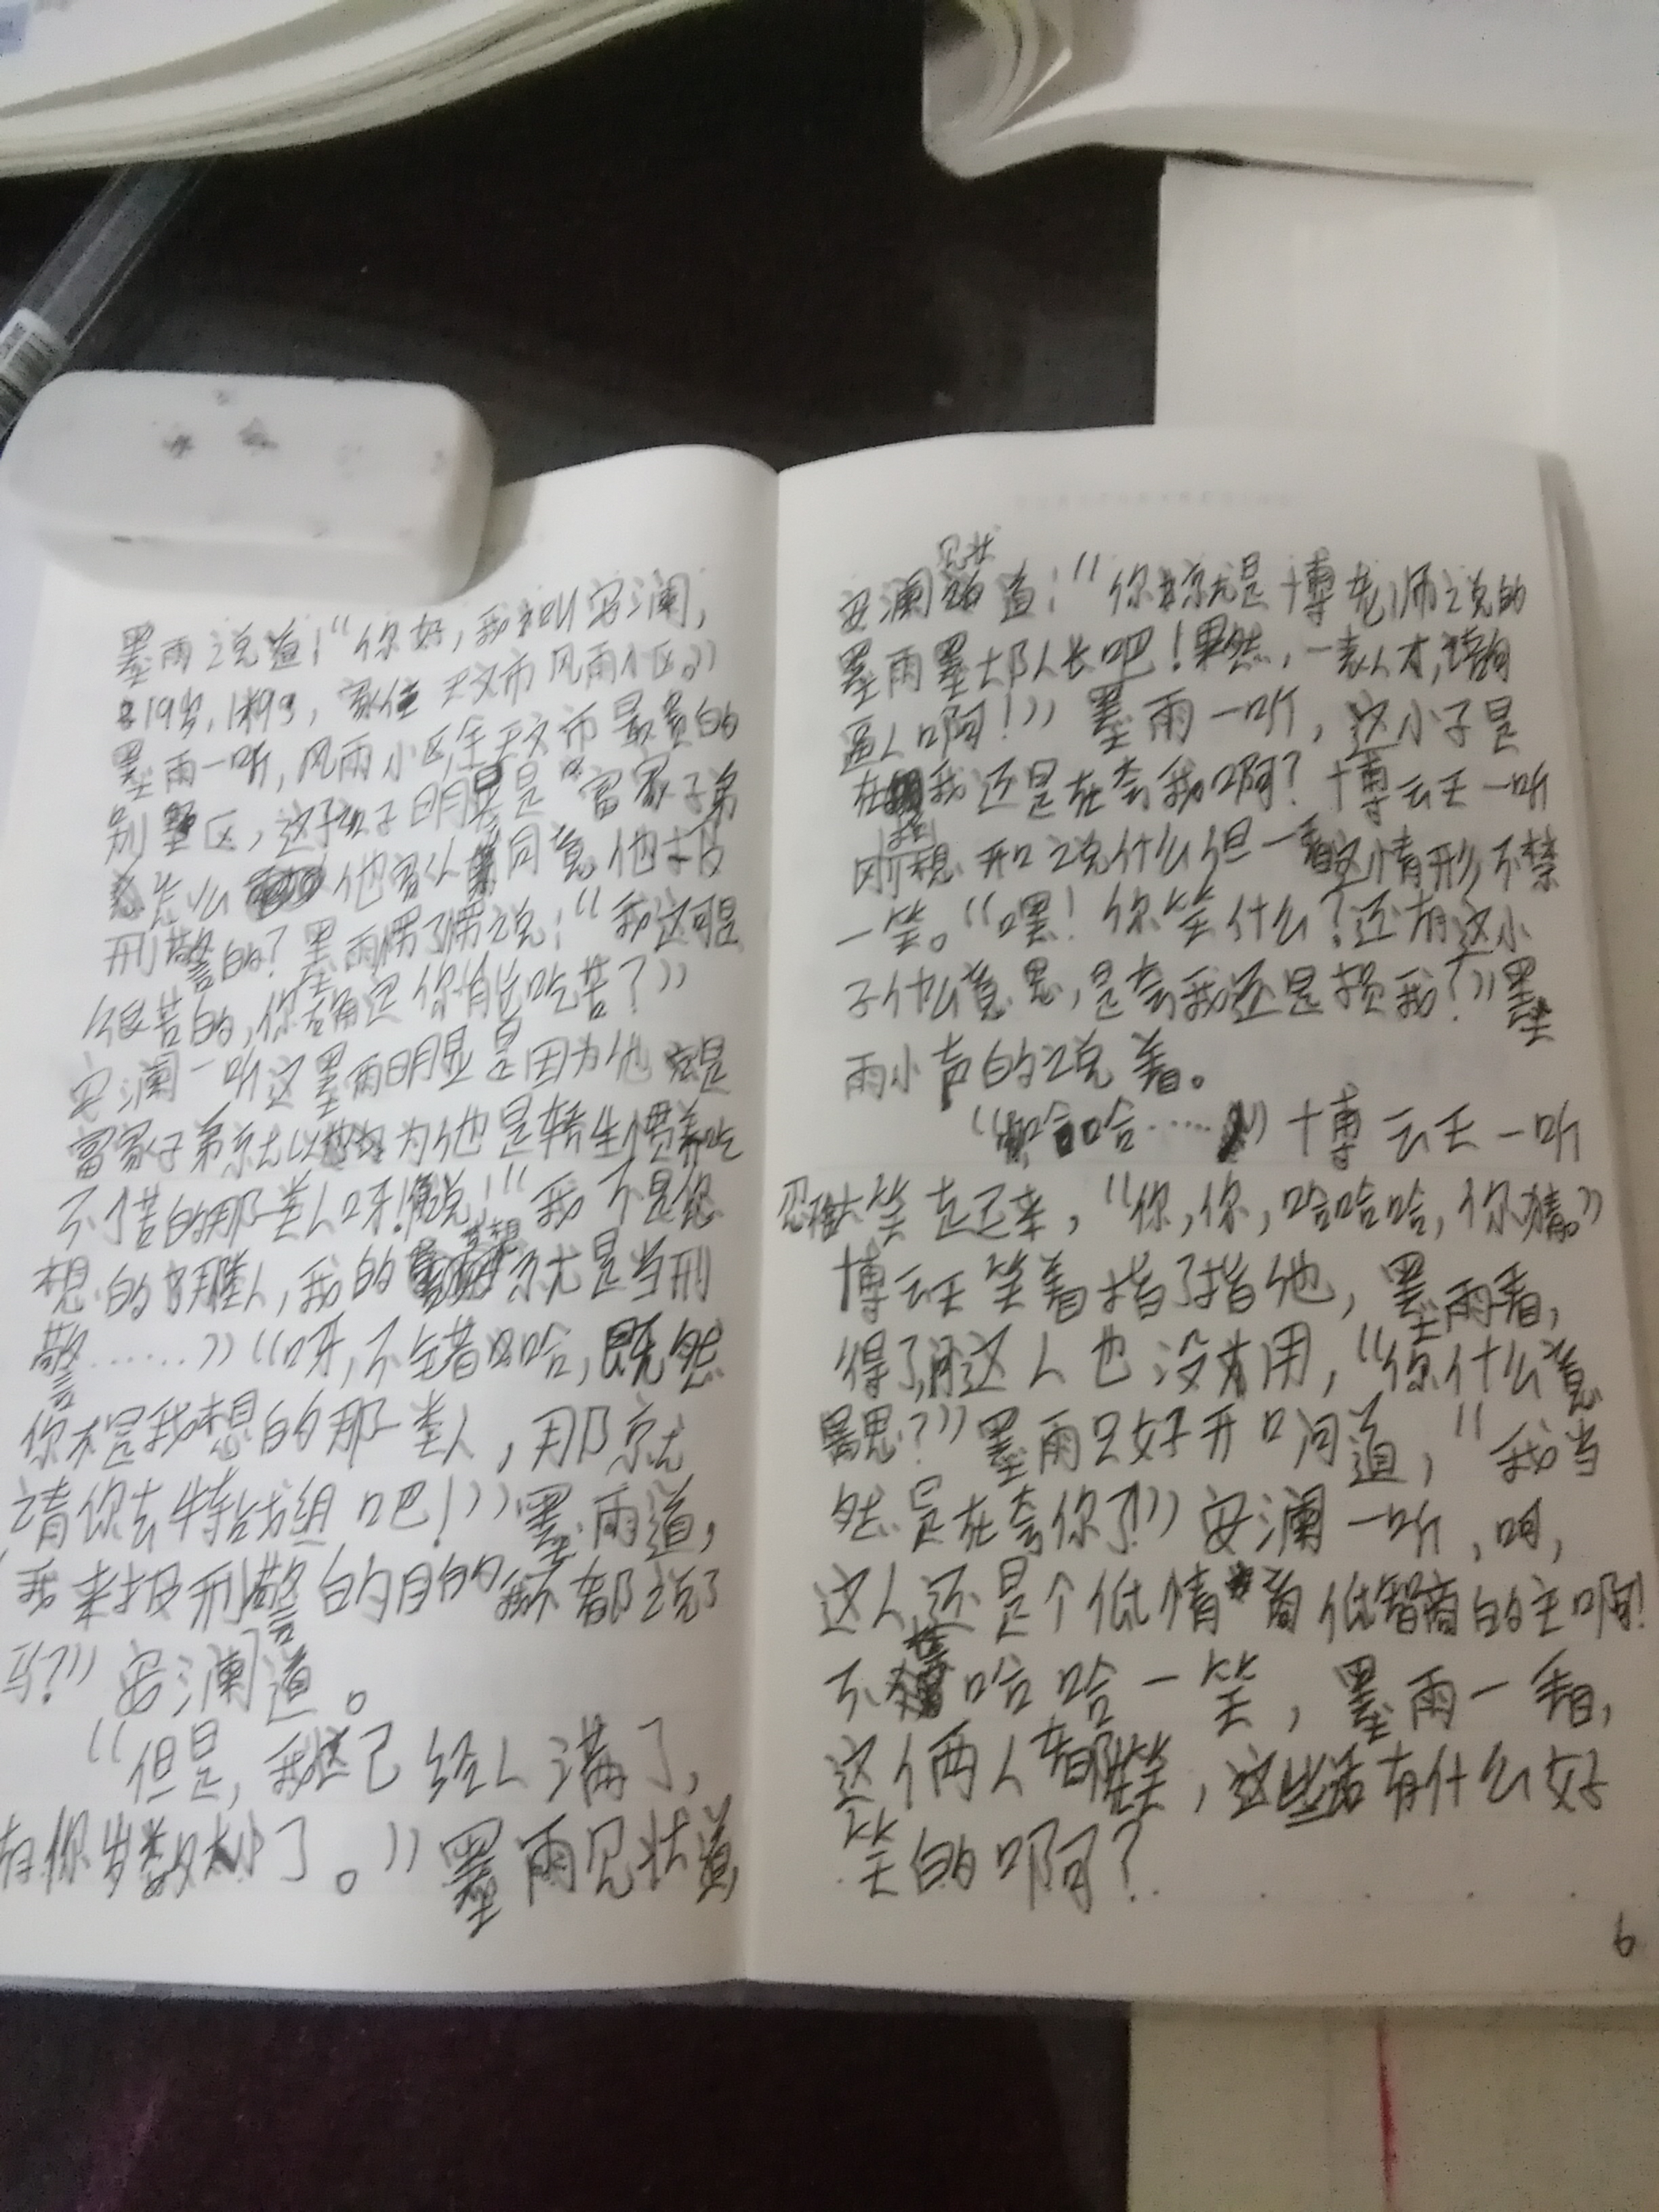 墨雨说道:“你好,我叫安澜,
19岁,1米93,家住天文市风雨小区。”
墨雨一听,风雨小区在天文市最贵的
别墅区,这小子明显是富家子弟
怎么他家人同意他报
刑警的?墨雨愣了愣说:“我这可是
很苦的,你确定你能吃苦?”
安澜一听这墨雨明显是因为他是
富家子弟就以为他是娇生惯养吃
不了苦的那类人呀!说:“我不是您
想的那种人,我的梦想就是当刑
警……”“呀,不错哈,既然
你不是我想的那类人,那就
请你去特战组吧!”墨雨道,
我来报刑警的目的都说了
吗?”安澜道。
“但是,我这已经人满了,
有你岁数大了。”墨雨见状道
安澜见状道:“你就是博老师说的
墨雨墨队长吧!果然,一表人才,
逼人啊!”墨雨一听,这小子是
在损我还是在夸我啊?博云天一听
刚想开口说什么但一看这情形不禁
一笑。“嘿!你笑什么?还有这小
子什么意思,是夸我还是损我?”墨
雨小声的说着。
“哈哈……”博云天一听
忍大笑起来,“你,你,哈哈哈,你猜。”
博云天笑着指了指他,墨雨看,
得了,问这人也没有用,“你什么意
思?”墨雨只好开口问道,“我当
然是在夸你了!”安澜一听,呵,
这人还是个低情商低智商的主啊!
不禁哈哈一笑,墨雨一看,
这俩人在那笑,这些话有什么好
笑的啊?
6